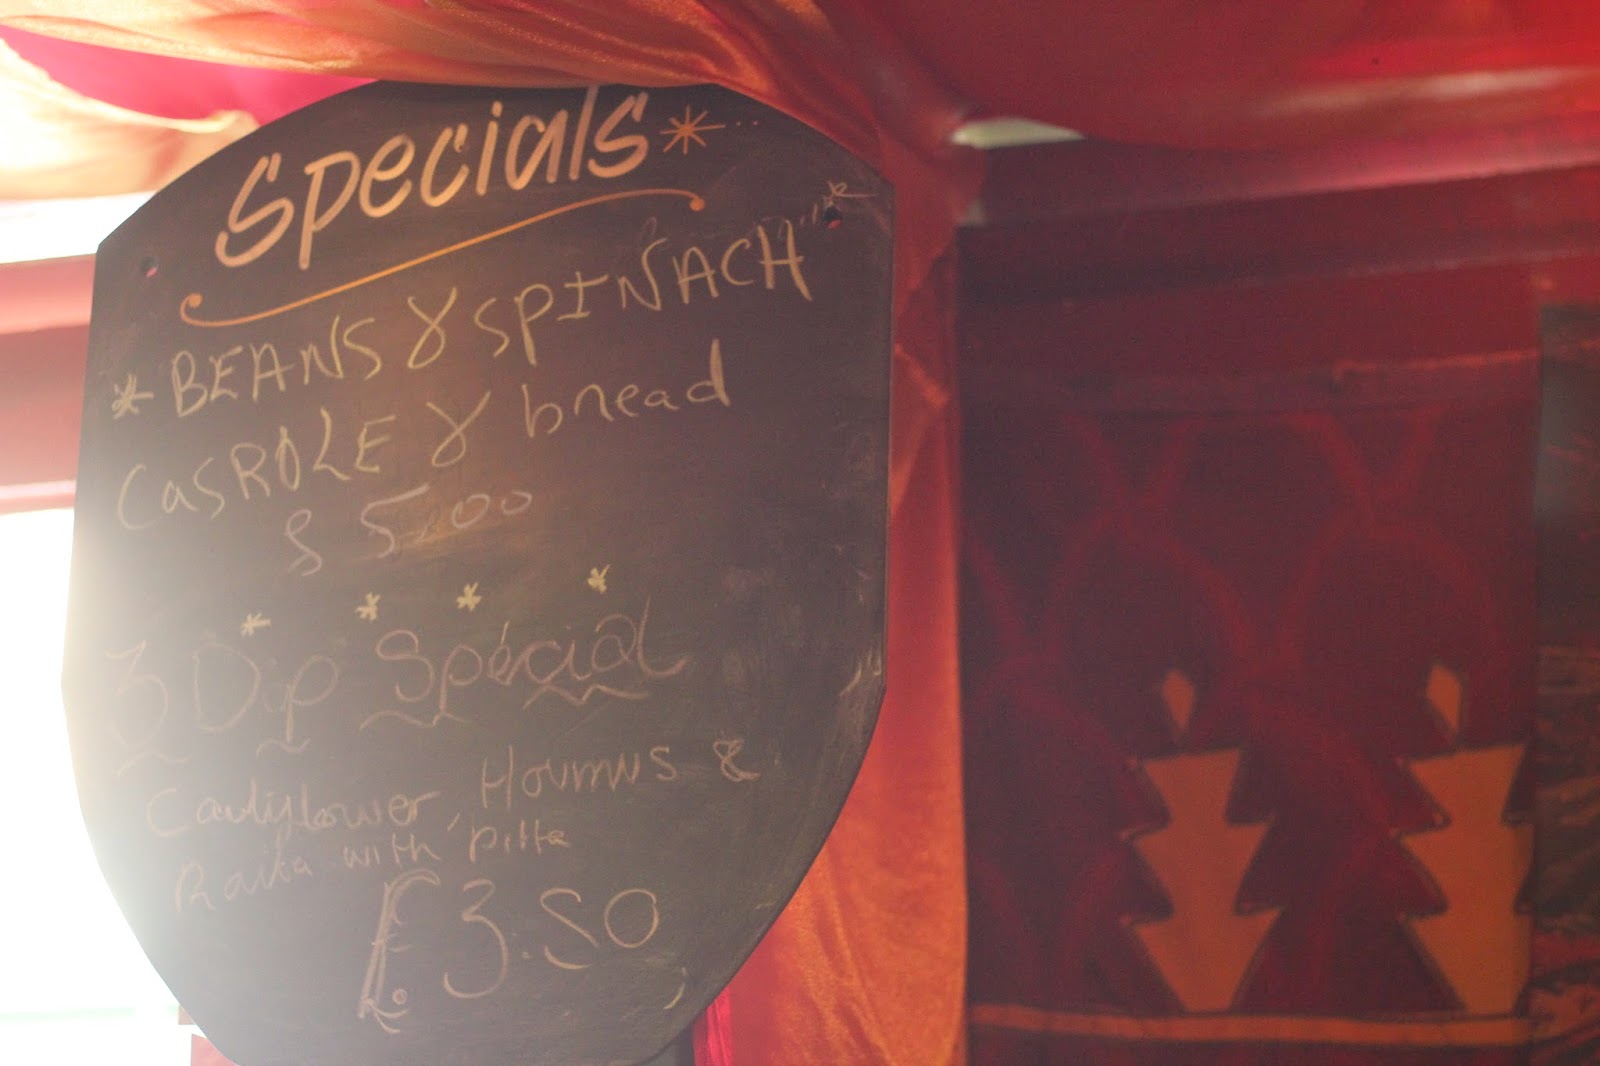 Specials
BEANS & SPINACH
CASROLE & bread
5.00
3 Dip Special
Cauliflower, Houmus &
Raita with pitta
£3.50